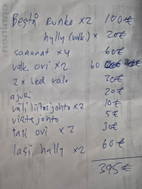 Bestå runko x2 100€
hylly (valk) x 20€
saranat x4 60€
valk. ovi x2 60
2 x led valo 30€
ajuri 20€
väliliitinjohto x2 10€
virtajohto 5€
lasi ovi x2 30€
lasi hylly x2 60€
395€